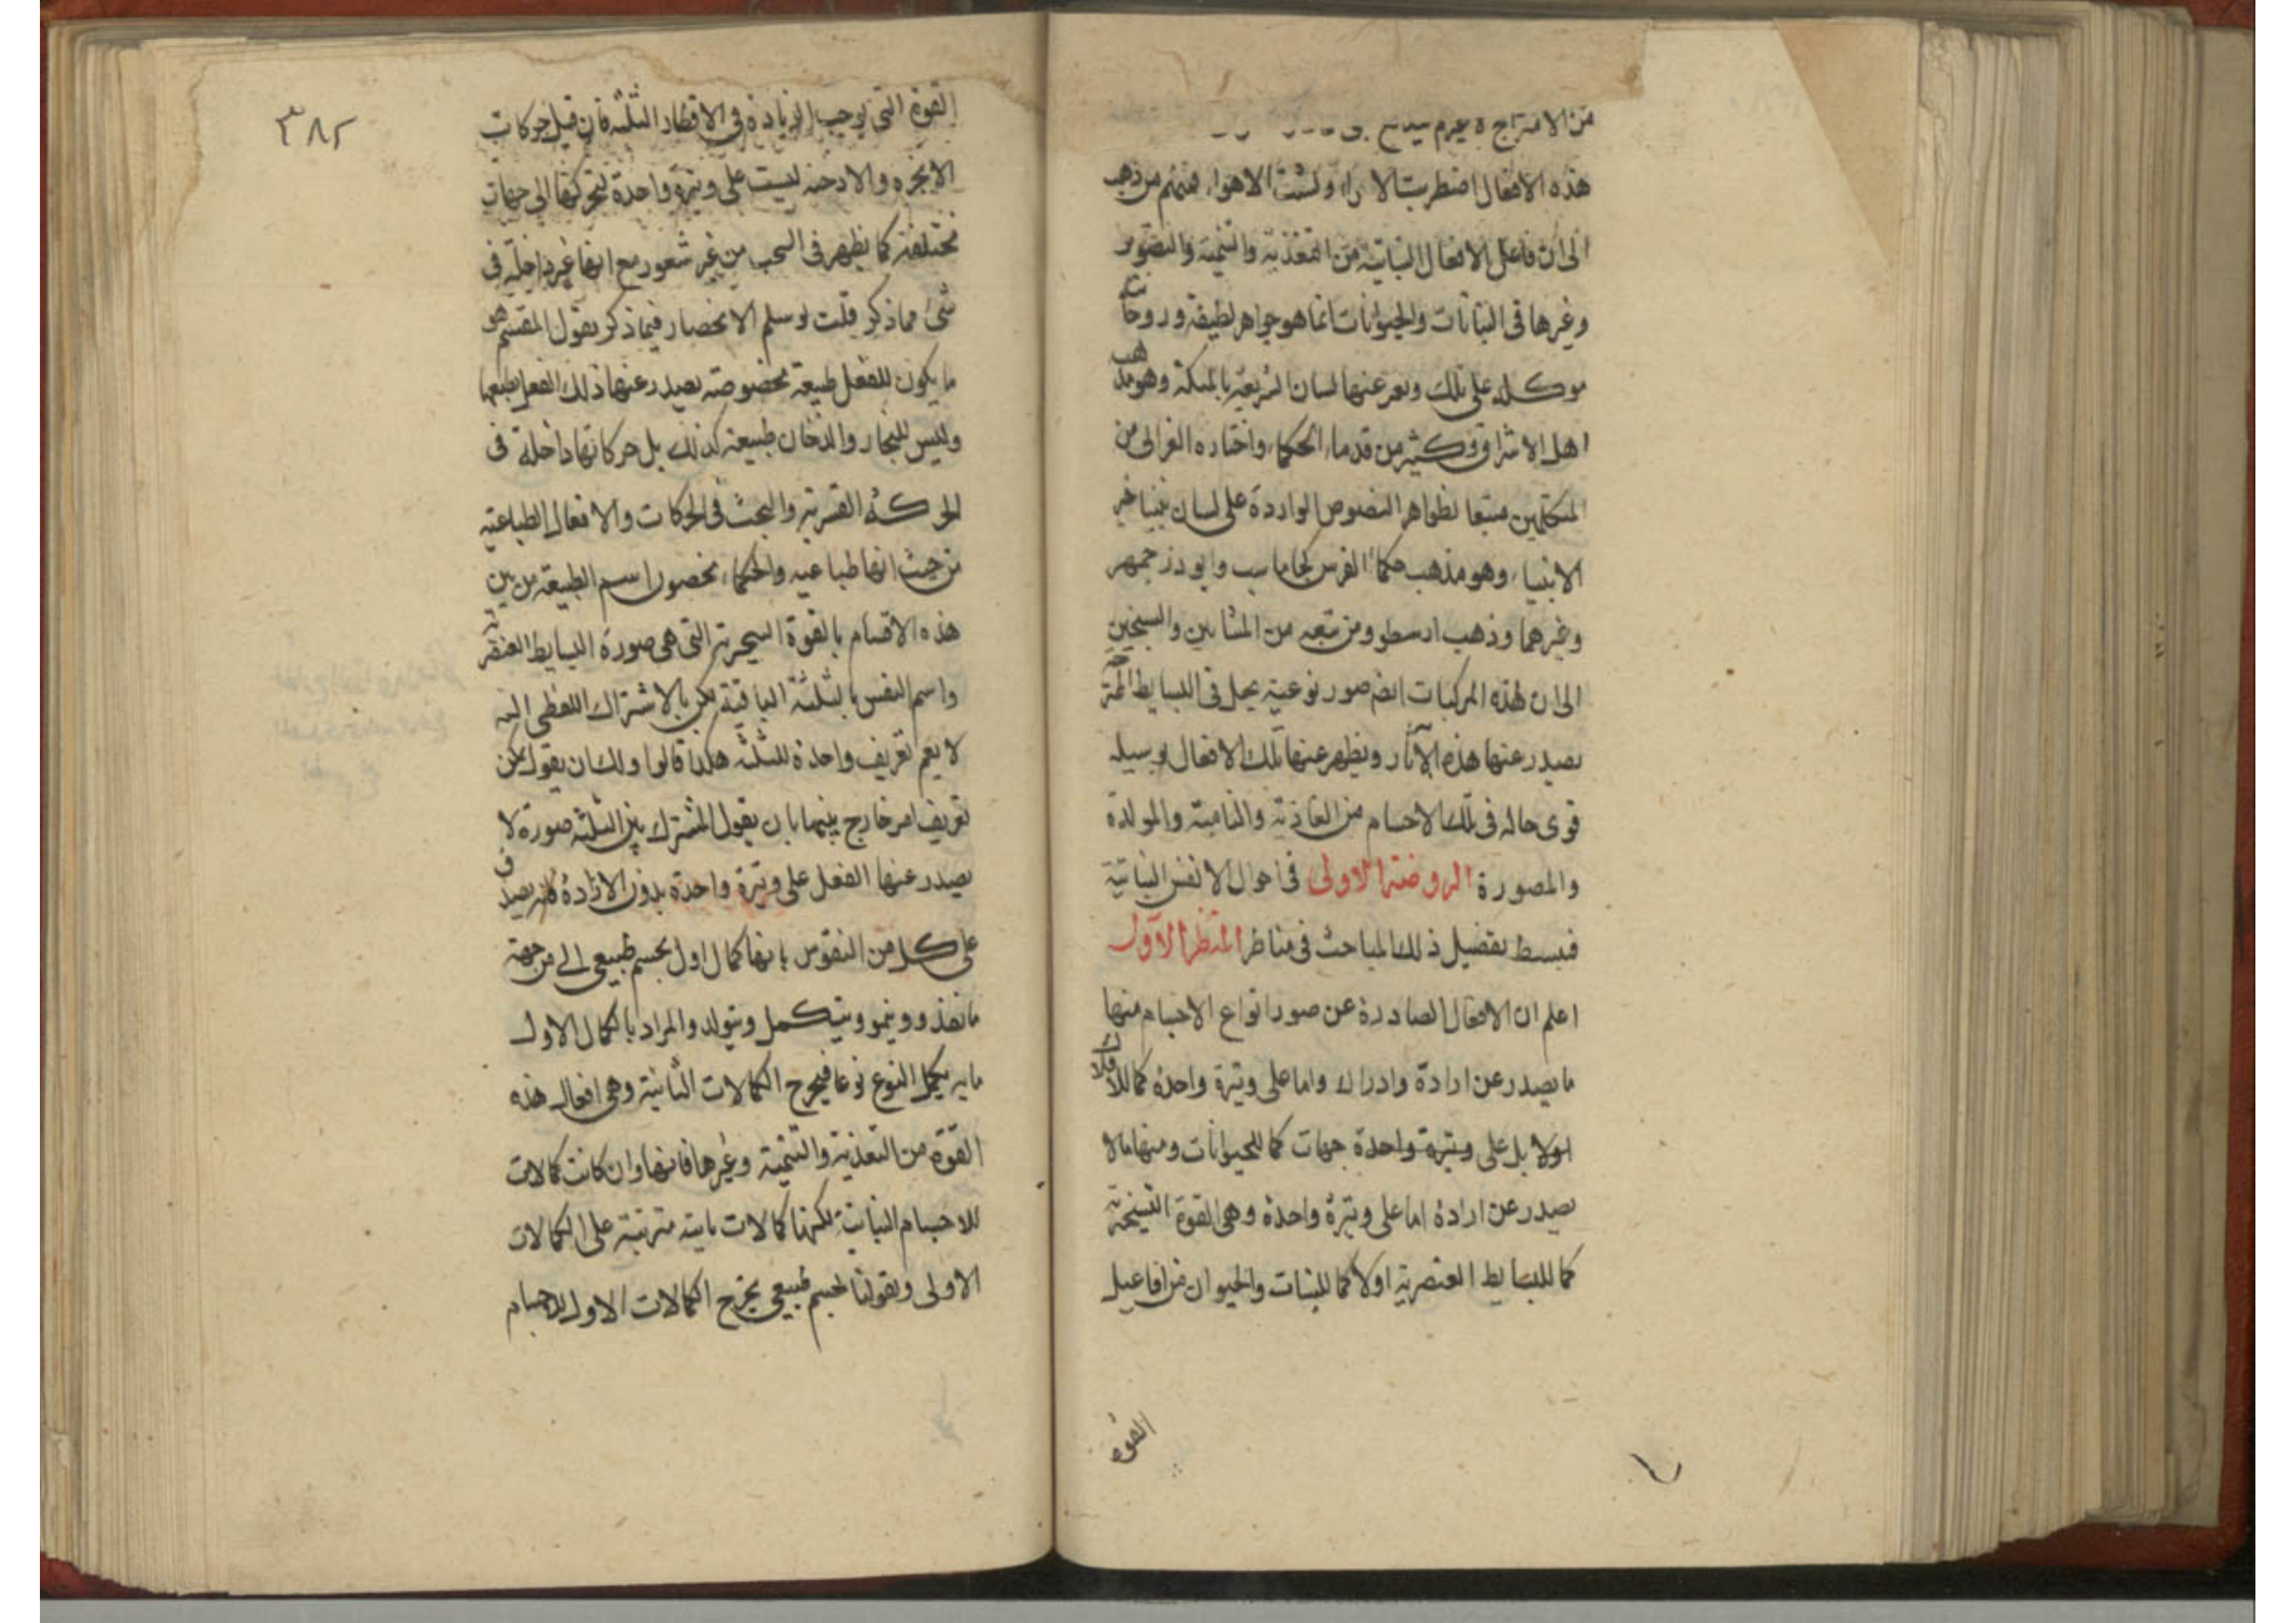 من الامتزاج
هذه الافعال اضطربت الاراء وتشتت الاهواء فمنهم من ذهب
الى ان فاعل الافعال النباتية من التغذية والتنمية والتصوير
وغيرها فى النباتات والحيوانات انما هو جواهر لطيفة وروحانية
موكله على تلك ويعبر عنها لسان الشريعة بالملكة وهو مذهب
اهل الاشراق وكثير من قدماء الحكماء واختاره الغزالى من
المتكلمين متبعا لظواهر النصوص الواردة على لسان نبينا خير
الانبياء وهو مذهب حكماء الفرس كجاماسب وابوذرجمهر
وغيرهما وذهب ارسطو ومن تبعه من المشايين والشيخين
الى ان لهذه المركبات ايضا صور نوعية يحل فى البسايط
يصدر عنها هذه الآثار ويظهر عنها تلك الافعال بوسيله
قوى حاله فى تلك الاجسام من الغاذية والنامية والمولدة
والمصورة الروضة الاولى فى احوال الانفس النباتية
فبسط تفصيل ذلك المباحث فى مناظر المنظر الاول
اعلم ان الافعال الصادرة عن صور انواع الاجسام منها
ما يصدر عن ارادة وادراك واما على وتيرة واحدة كما للافلاك
اولا بل على وتيرة واحدة جهات كما للحيوانات ومنها ما لا
يصدر عن ارادة اما على وتيرة واحدة وهى القوة
كما للبسايط العنصرية اولا كما للنبات والحيوان من افاعيل
القوه
٣٨٢
القوة التى يوجب الزيادة فى الاقطار الثلثه فان قيل حركات
الابخره والادخنه ليست على وتيرة واحدة لتحركها الى جهات
مختلفة كما يظهر فى السحب من غير شعور مع انها غير داخلة فى
شىء مما ذكر قلت لو سلم الانحصار فيما ذكر يقول المقسم هو
ما يكون للفعل طبيعة مخصوصة يصدر عنها ذلك الفعل بطبعها
وليس للبخار والدخان طبيعة كذلك بل حركاتها داخلة فى
الحركة القسرية والبحث فى الحركات والافعال الطباعية
من حيث انها طباعيه والحكماء يخصون اسم الطبيعة من بين
هذه الاقسام بالقوة التى هى صورة البسايط العنصرية
واسم النفس بالثلثة الباقية لكن بالاشتراك اللفظى
لا يعم تعريف واحدة للثلثة هكذا قالوا ولك ان يقول يمكن
تعريف امر خارج بينهما بان يقول المشترك بين الثلثة صورة لا
يصدر عنها الفعل على وتيرة واحدة بدون الارادة فانه يصدق
على كل من النفوس بانها كمال اول لجسم طبيعى الى من جهة
ما تغذو وينمو ويتكمل ويتولد والمراد بالكمال الاول
ما به يكمل النوع نوعا فيخرج الكمالات الثانية وهى افعال هذه
القوة من التغذية والتنمية وغيرها فانها وان كانت كمالات
للاجسام النباتية لكنها كمالات ثانية مترتبة على الكمالات
الاولى وبقولنا لجسم طبيعى يخرج الكمالات الاول للاجسام